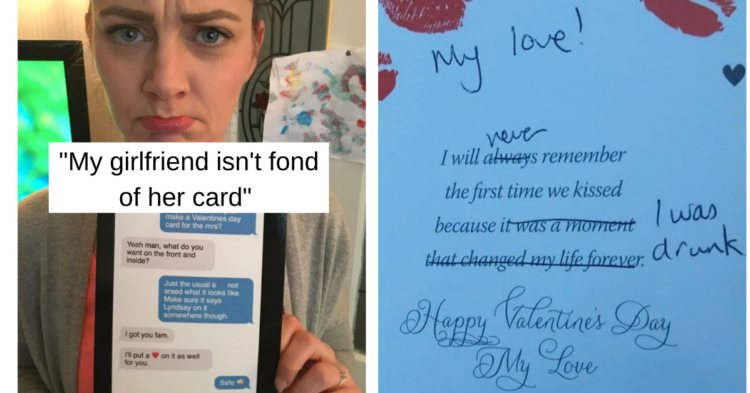 "My girlfriend isn't fond
of her card"
make a Valentines day
card for the mrs?
Yeah man, what do you
want on the front and
inside?
Just the usual s not
arsed what it looks like.
Make sure it says
Lyndsay on it
somewhere though.
I got you fam.
I'll put a ❤ on it as well
for you.
Safe
My love!
never
I will always remember
the first time we kissed
because it was a moment
I was
that changed my life forever.
drunk
Happy Valentine's Day
My Love